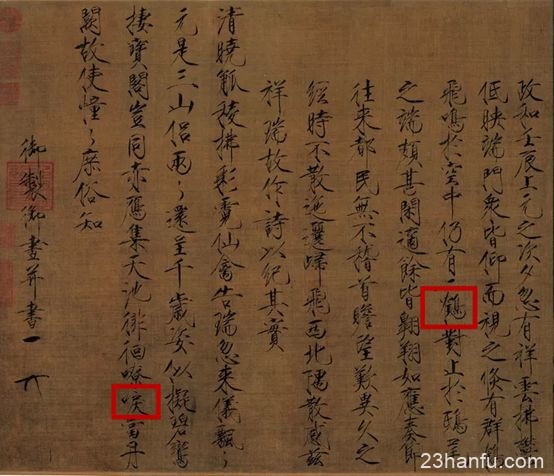 政和壬辰上元之次夕忽有祥雲拂鬱
低映端門衆皆仰而視之倏有群鶴
飛鳴於空中仍有二鶴對止於鴟尾
之端頗甚閑適餘皆翱翔如應奏節
往來都民無不稽首瞻望歎異久之
經時不散迤邐歸飛西北隅散感茲
祥瑞故作詩以紀其實
清曉觚稜拂彩霓仙禽告瑞忽來儀飄〻
元是三山侶兩〻還呈千歲姿似擬碧鸞
棲寶閣豈同赤鴈集天池徘徊嘹唳當丹
闕故使憧〻庶俗知
御製御畫并書
23hanfu.com